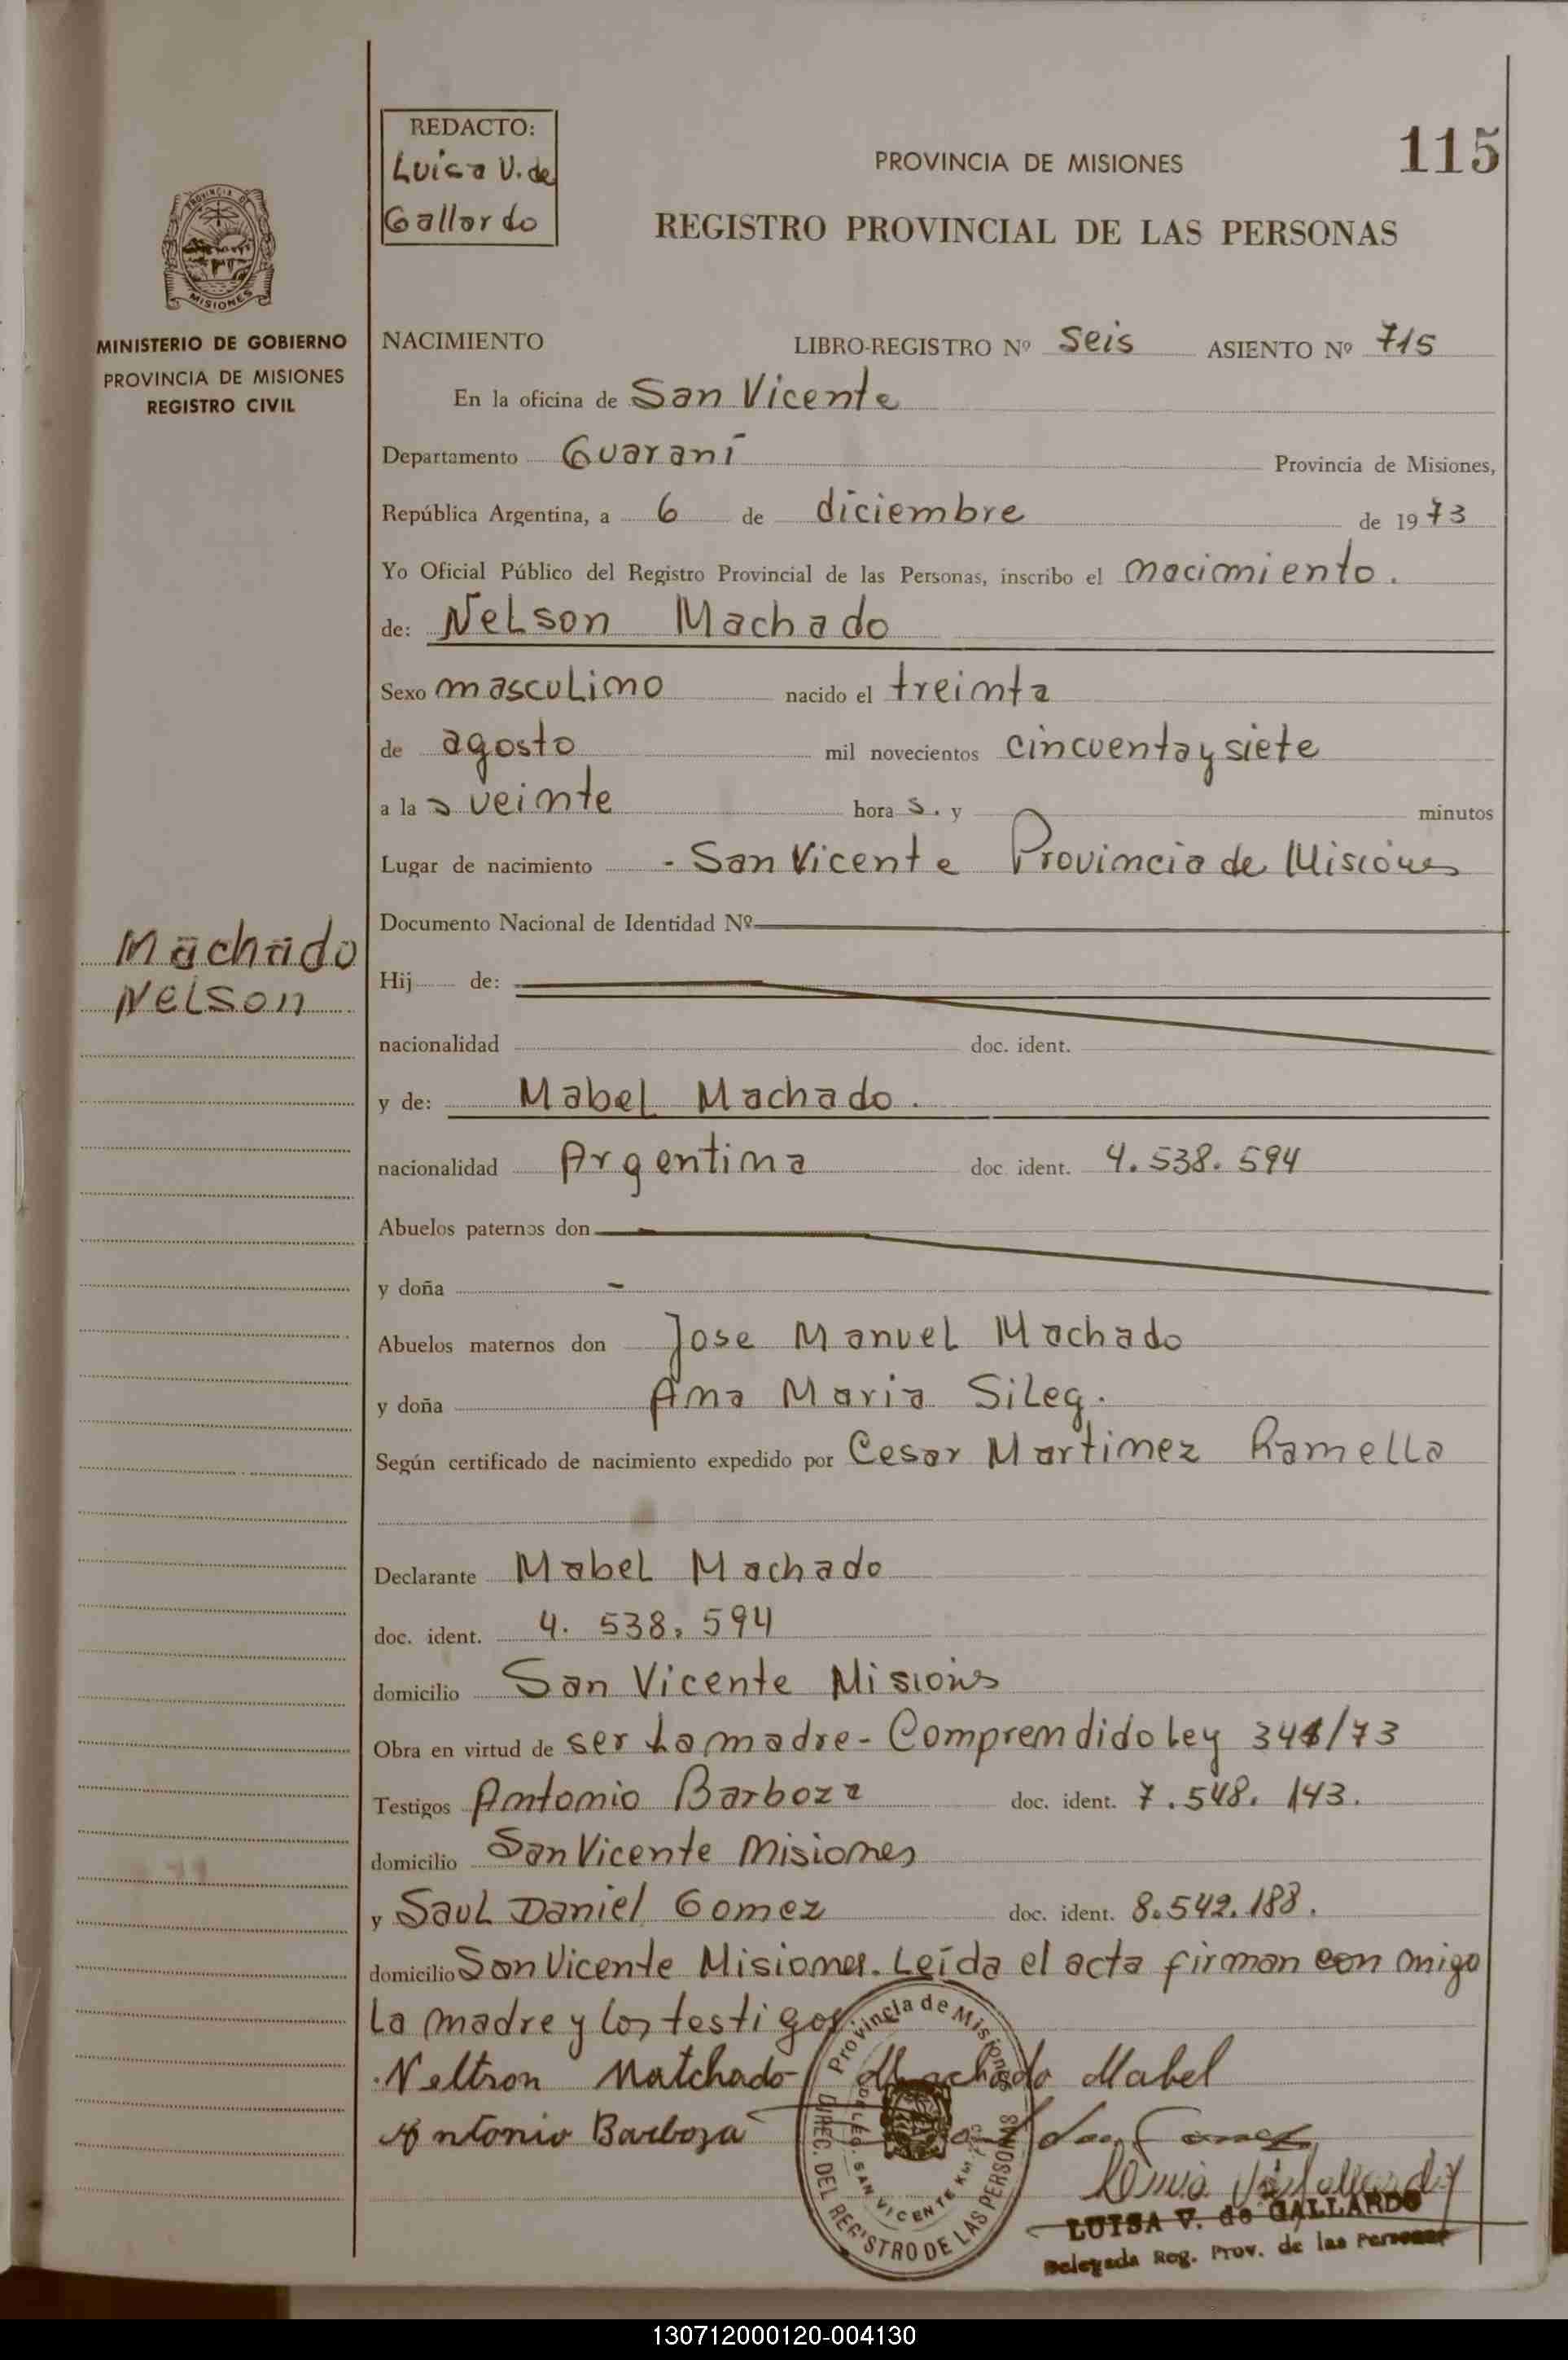 REDACTO:
Luisa V. de
Gallardo
PROVINCIA DE MISIONES
115
REGISTRO PROVINCIAL DE LAS PERSONAS
PROVINCIA DE
MISIONES
MINISTERIO DE GOBIERNO
PROVINCIA DE MISIONES
REGISTRO CIVIL
NACIMIENTO LIBRO-REGISTRO Nº Seis ASIENTO Nº 715
En la oficina de San Vicente
Departamento Guaraní Provincia de Misiones,
República Argentina, a 6 de diciembre de 1973
Yo Oficial Público del Registro Provincial de las Personas, inscribo el nacimiento.
de: Nelson Machado
Sexo masculino nacido el treinta
de agosto mil novecientos cincuenta y siete
a las veinte horas. y minutos
Lugar de nacimiento - San Vicente Provincia de Misiones
Documento Nacional de Identidad Nº
Machado
Nelson
Hij de:
nacionalidad doc. ident.
y de: Mabel Machado.
nacionalidad Argentina doc. ident. 4.538.594
Abuelos paternos don
y doña -
Abuelos maternos don Jose Manuel Machado
y doña Ana Maria Sileg.
Según certificado de nacimiento expedido por Cesar Martinez Ramella
Declarante Mabel Machado
doc. ident. 4. 538. 594
domicilio San Vicente Misiones
Obra en virtud de ser la madre - Comprendido Ley 344/73
Testigos Antonio Barboza doc. ident. 7.548.143.
domicilio San Vicente Misiones
y Saul Daniel Gomez doc. ident. 8.542.188.
domicilio San Vicente Misiones. Leída el acta firman con migo
La madre y los testigos
Neltron Matchado Machado Mabel
Antonio Barboza
Provincia de Misiones
DIREC. DEL REGISTRO DE LAS PERSONAS
SAN VICENTE KM
LUISA V. de GALLARDO
Delegada Reg. Prov. de las Personas
130712000120-004130